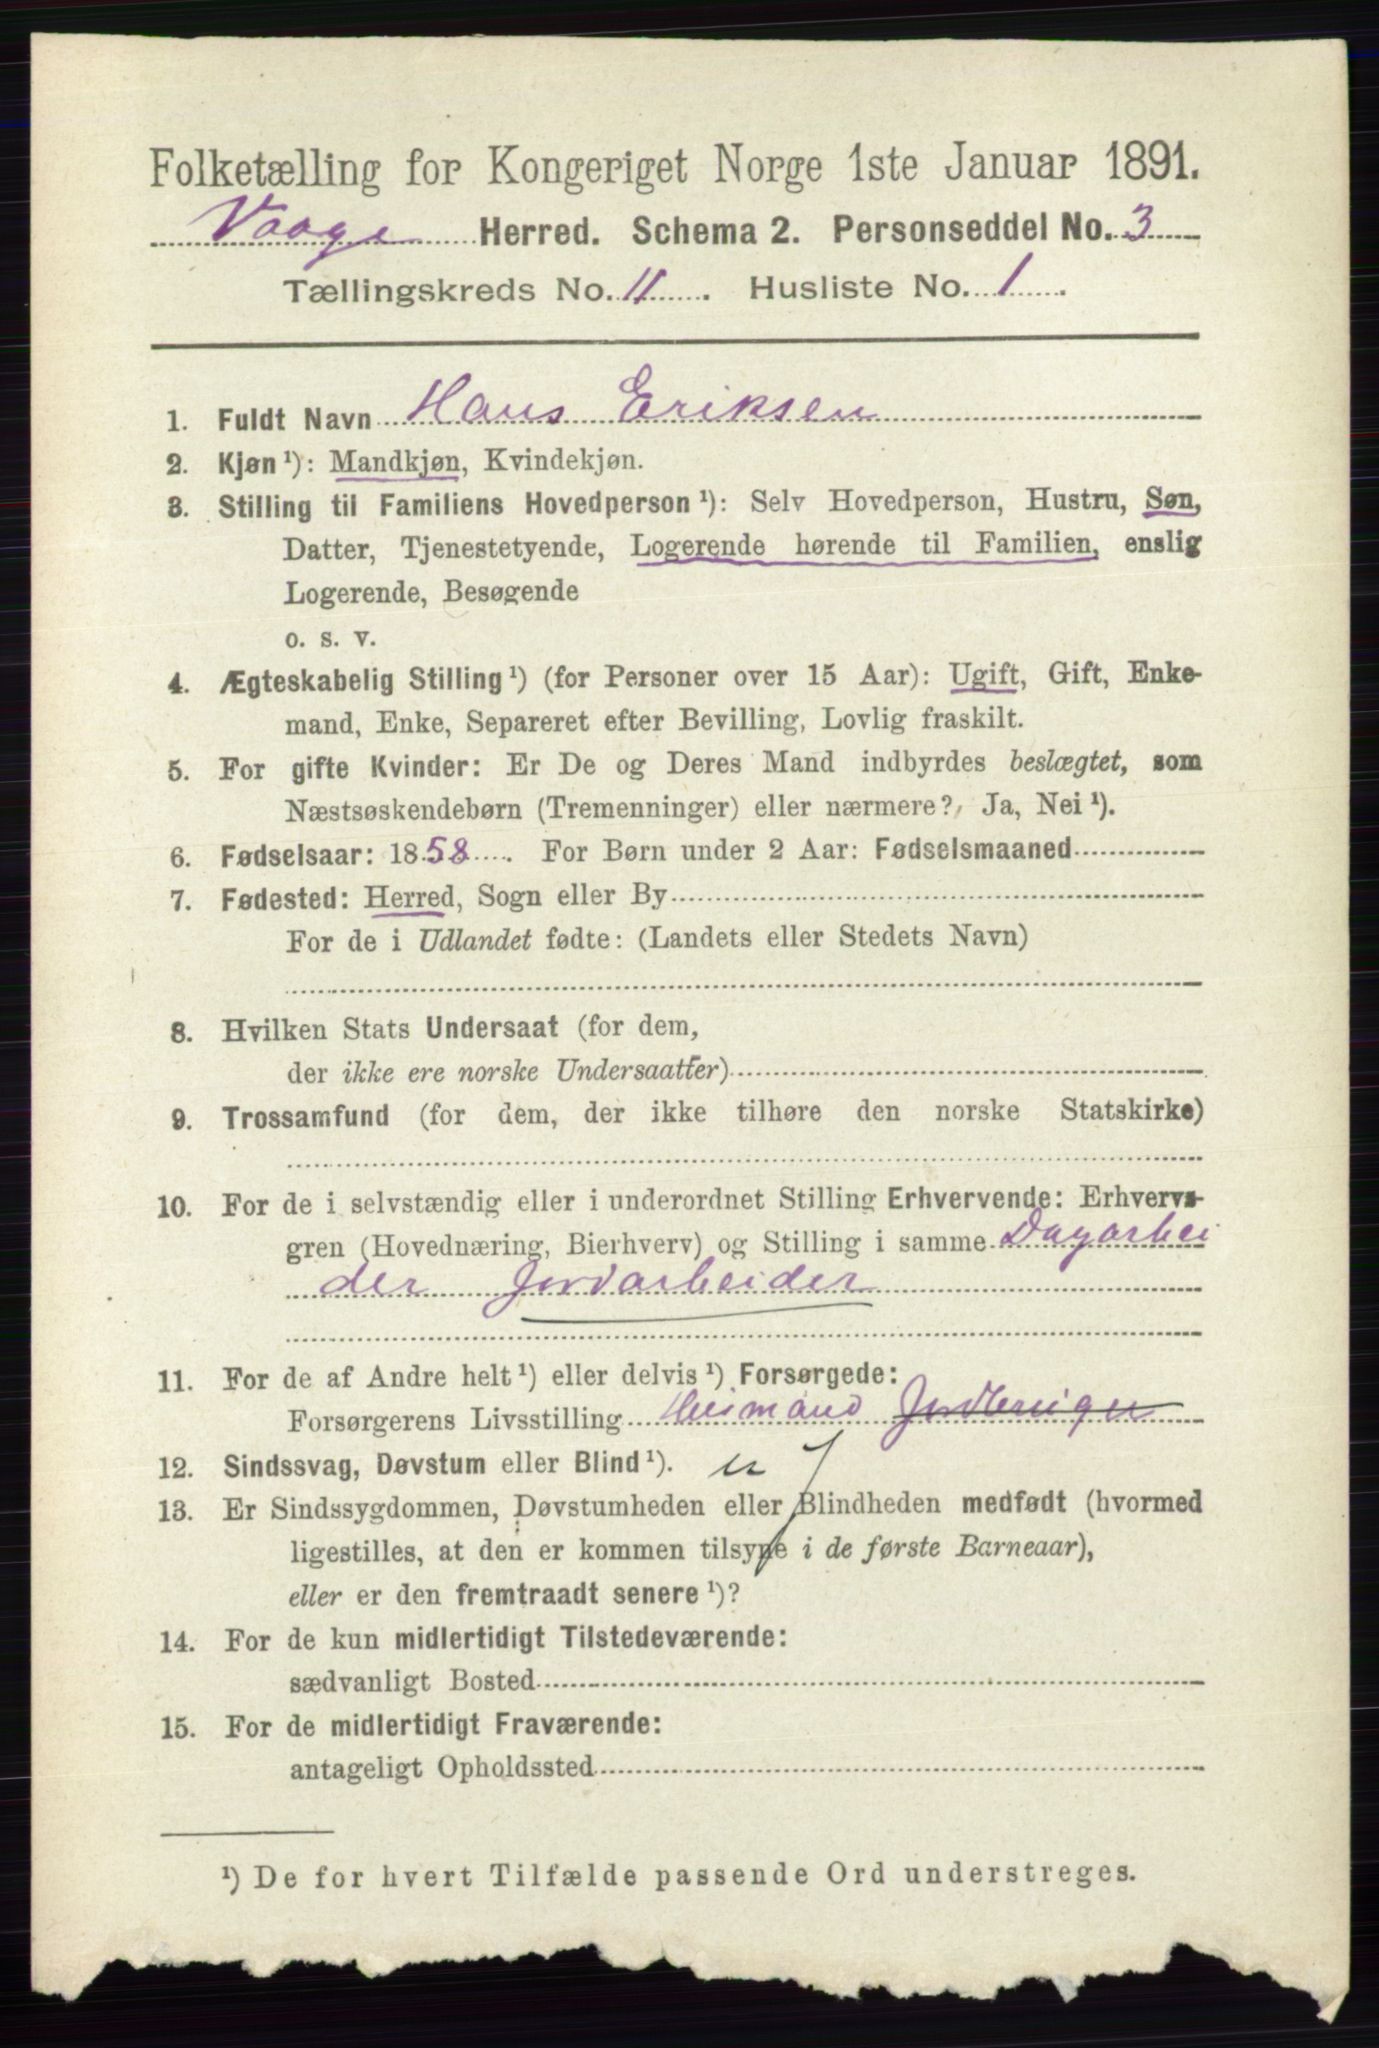 Folketælling for Kongeriget Norge 1ste Januar 1891.
Vaage Herred. Schema 2. Personseddel No. 3
Tællingskreds No. 11. Husliste No. 1.
1. Fuldt Navn Hans Eriksen
2. Kjøn ¹): Mandkjøn, Kvindekjøn.
3. Stilling til Familiens Hovedperson ¹): Selv Hovedperson, Hustru, Søn,
Datter, Tjenestetyende, Logerende hørende til Familien, enslig
Logerende, Besøgende
o. s. v.
4. Ægteskabelig Stilling ¹) (for Personer over 15 Aar): Ugift, Gift, Enke-
mand, Enke, Separeret efter Bevilling, Lovlig fraskilt.
5. For gifte Kvinder: Er De og Deres Mand indbyrdes beslægtet, som
Næstsøskendebørn (Tremenninger) eller nærmere? Ja, Nei ¹).
6. Fødselsaar: 1858. For Børn under 2 Aar: Fødselsmaaned
7. Fødested: Herred, Sogn eller By
For de i Udlandet fødte: (Landets eller Stedets Navn)
8. Hvilken Stats Undersaat (for dem,
der ikke ere norske Undersaatter)
9. Trossamfund (for dem, der ikke tilhøre den norske Statskirke)
10. For de i selvstændig eller i underordnet Stilling Erhvervende: Erhvervs-
gren (Hovednæring, Bierhverv) og Stilling i samme Dagarbei
der Jordarbeider
11. For de af Andre helt ¹) eller delvis ¹) Forsørgede:
Forsørgerens Livsstilling
12. Sindssvag, Døvstum eller Blind ¹).
13. Er Sindssygdommen, Døvstumheden eller Blindheden medfødt (hvormed
ligestilles, at den er kommen tilsyne i de første Barneaar),
eller er den fremtraadt senere ¹)?
14. For de kun midlertidigt Tilstedeværende:
sædvanligt Bosted
15. For de midlertidigt Fraværende:
antageligt Opholdssted
¹) De for hvert Tilfælde passende Ord understreges.